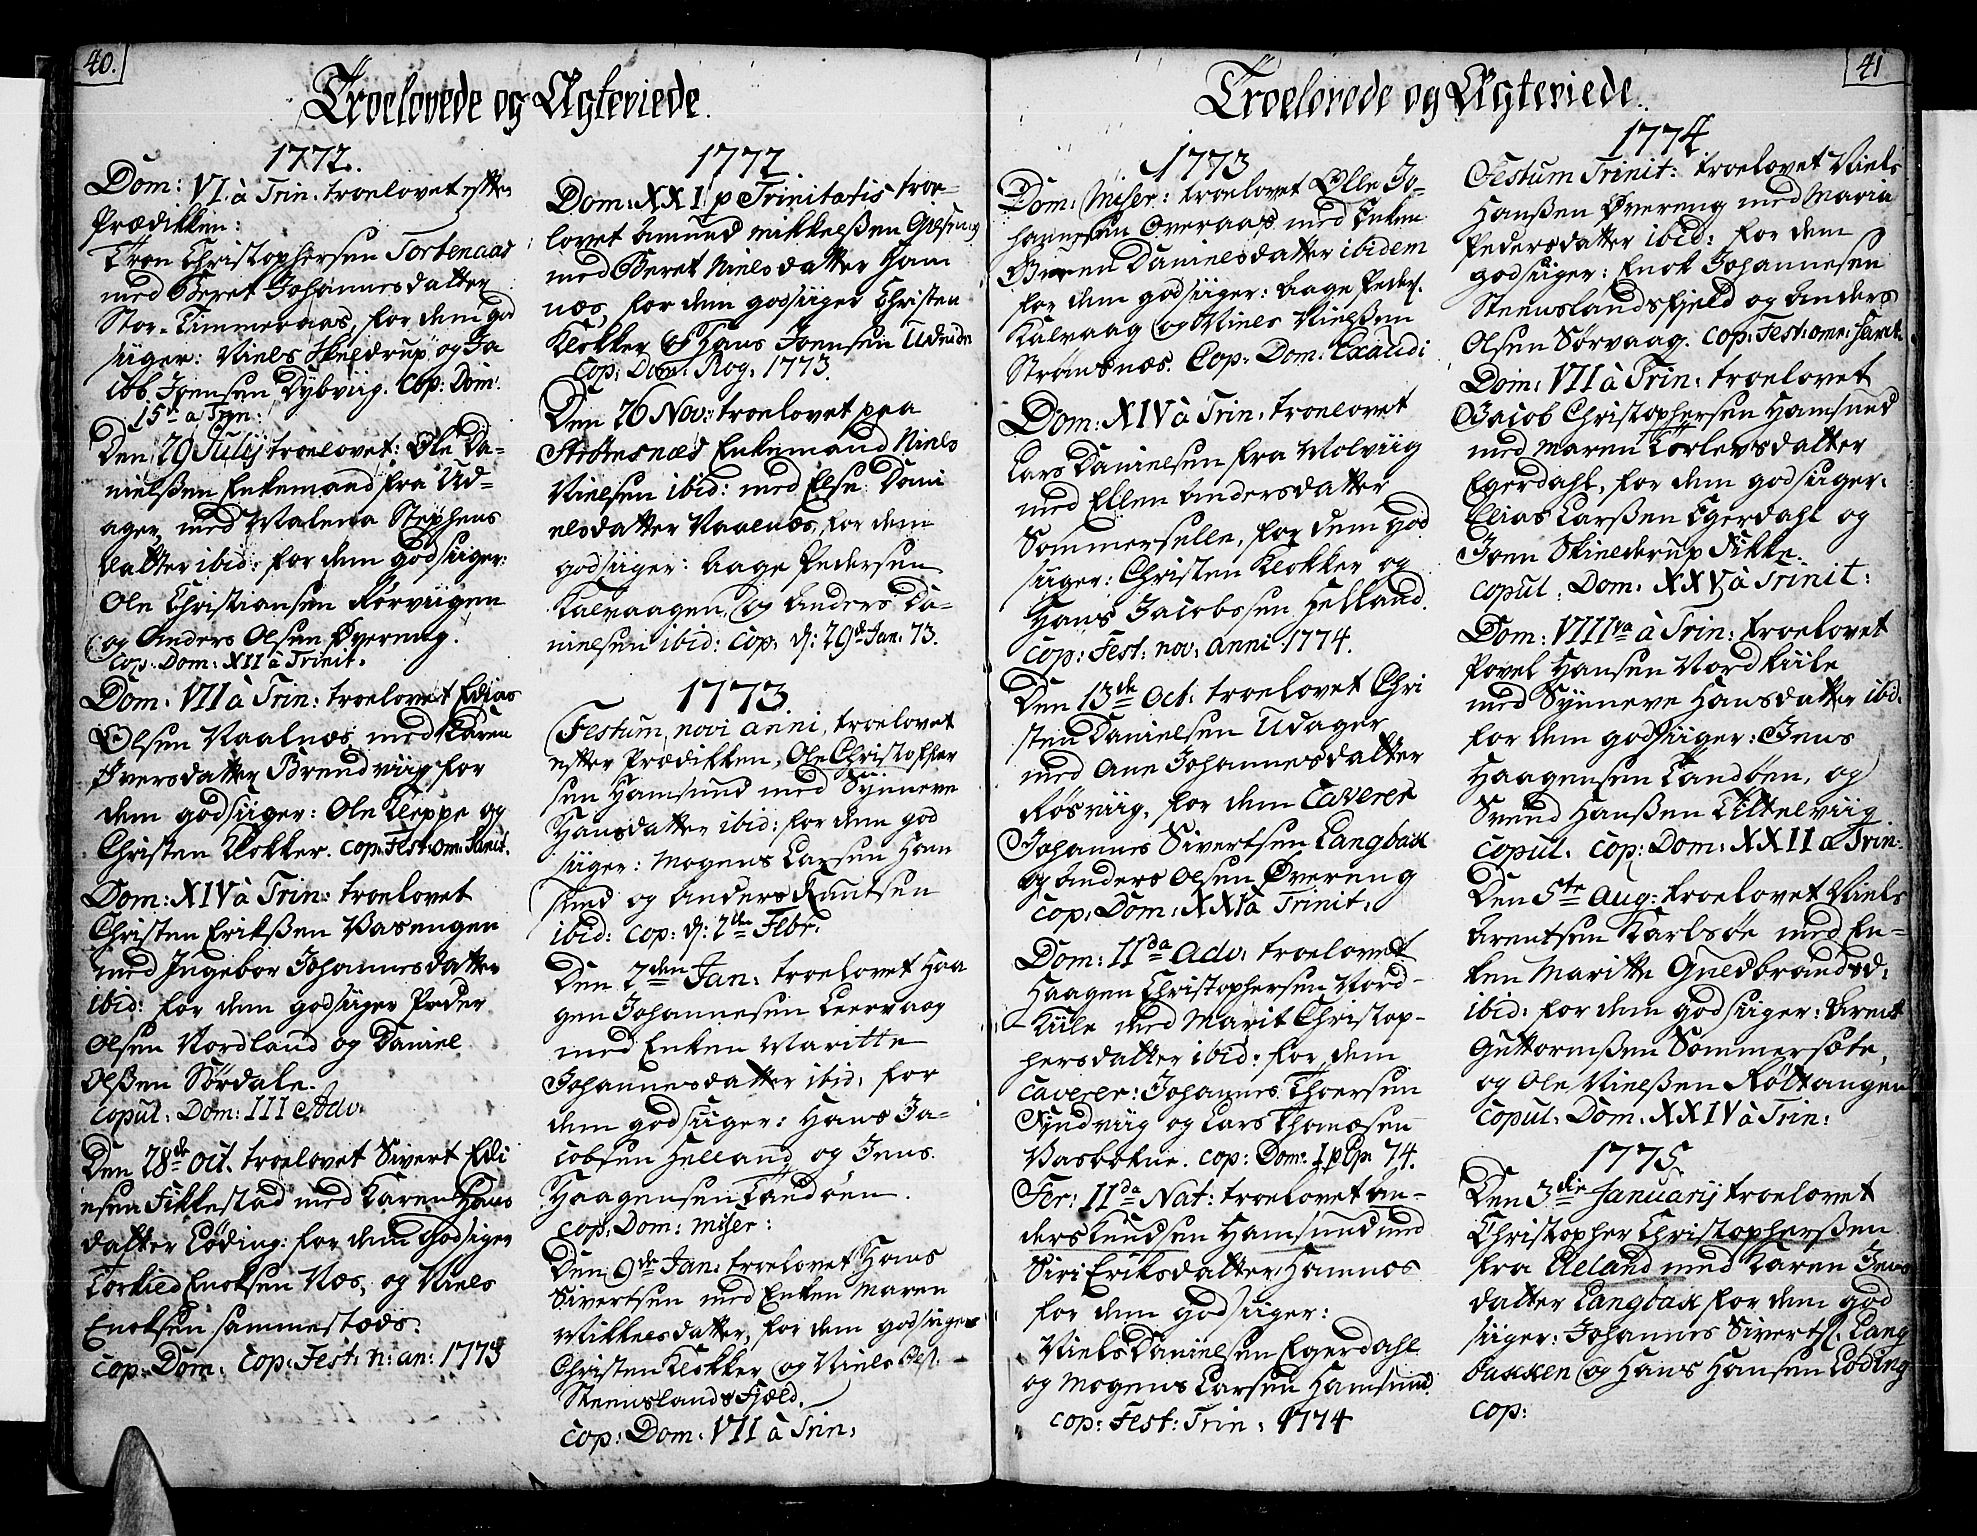 40.
Troelovede og Ægteviede.
1772.
Dom: VI. à Trin. troelovet efter
Prædikken:
Tron Christophersen Tortenaas
med Beret Johannesdatter
Stor-Timmeraas, for dem god
siiger: Niels Skeldrup og Ja
cob Joensen Dybviig. Cop: Dom:
15de a Trin:
Den 29 Julij troelovet: Ole Da-
nielßen Enkemand fra Ud-
ager, med Malena Stephens
datter ibid: for dem godsiiger:
Ole Christiansen Rørviigen
og Anders Olsen Øvereng.
Cop: Dom: XII à Trinit.
Dom: VII à Trin: troelovet Edias
Olsen Naalnæs med Karen
Iversdatter Brendviig for
dem godsiiger: Ole Kleppe og
Christen Klokker. cop: Fest: om: Sanct.
Dom: XIV à Trin: troelovet
Christen Erikßen Vasengen
med Ingebor Johannesdatter
ibid: for dem godsiiger Peder
Olsen Nordland og Daniel
Olßen Sørdale.
Copul: Dom: III Adv:
Den 28de Oct. troelovet Sivert Edi
esen Fikkestad med Karen Hans
datter Løding: for dem Godsiger
Torkied Enoksen Næs, og Niels
Enoksen sammestæds.
cop: Dom: Cop: Fest: n: an: 1773
1772.
Dom: XXI p Trinitatis troe-
lovet Amund Mikkelßen Giæseng
med Beret Nielsdatter Ham
næs, for dem godsiiger Christen
Klokker og Hans Joensen Udeide
Cop: Dom: Rog: 1773.
Den 26 Nov: troelovet paa
Strømsnæs Enkemand Niels
Nielsen ibid: med Else Dani
elsdatter Naalnæs, for dem
godsiiger: Aage Pedersen
Kalvaagen, og Anders Da-
nielsen ibid: Cop: d: 29de Jan: 73.
1773
Festum novi anni, troelovet
efter Prædikken, Ole Christoffer
sen Hamsund med Synneve
Hansdatter ibid: for dem god
siiger: Mogens Larsen Ham
sund og Anders Knutsen
ibid: cop: d: 2den Febr:
Den 7den Jan: troelovet Haa
gen Johannesen Leervaag
med Enken Maritte
Johannesdatter ibid: for
dem godsiiger: Hans Ja-
cobsen Helland og Jens
Haagensen Tandøen.
cop: Dom: Miser:
Den 9de Jan: troelovet Hans
Sivertsen med Enken Maren
Mikkelsdatter, for dem godsiiger
Christen Klokker og Niels Ols:
Steenslands Fjæld.
cop: Dom: VII à Trin:
41
Troelovede og Ægteviede.
1773
Dom: Miser: troelovet Olle Jo-
hannesen Overaas med Enken
Beren Danielsdatter ibidem
for dem godsiiger: Aage Peders.
Kalvaag og Niels Nielßen
Strømsnæs. Cop: Dom: Exaudi
Dom: XIV à Trin: troelovet
Lars Danielsen fra Molviig
med Ellen Andersdatter
Sommerselle, for dem god
siiger: Christen Klokker og
Hans Jacobssen Helland.
cop: Fest: nov: anni 1774.
Den 13de Oct: troelovet Chri
sten Danielsen Udager
med Ane Johannesdatter
Røsviig, for dem Caverer
Johannes Sivertsen Langbax
og Anders Olsen Øvereng
cop: Dom: XX à Trinit:
Dom: IIda Adv: troelovet
Haagen Christophersen Nord-
Kiile med Marit Christop-
hersdatter ibid: for dem
Caverer: Johannes Thoersen
Syndviig og Lars Thomæsen
Vasbotne. cop: Dom: I p Ep: 74.
Fer: IIda Nat: troelovet An-
ders Knudsen Hamsund med
Siri Eriksdatter Hamnæs
for dem godsiiger:
Niels Danielsen Egerdahl
og Mogens Larsen Hamsund
cop: Fest: Trin: 1774
1774.
Festum Trinit: troelovet Niels
Hanßen Øvereng med Maria
Pedersdatter ibid: for dem
godsiiger: Enok Johannesen
Steenslandsfjeld og Anders
Olsen Sørvaag. cop: Fest: omn: Sanct.
Dom: VII à Trin: troelovet
Jacob Christophersen Hamsund
med Maren Torlevsdatter
Egerdahl, for dem godsiiger:
Elias Larßen Egerdahl og
Joen Skielderup Fikke.
copul: Dom: XXV à Trinit:
Dom: VIIIva à Trin: troelovet
Povel Hansen Nordkiile
med Synneve Hansdatter ibid.
for dem godsiiger: Jens
Haagensen Tandøen, og
Svend Hanßen Tittelviig
copul. cop: Dom: XXII a Trin:
Den 5te Aug: troelovet Niels
Arentsen Karlsøe med En-
ken Maritte Guldbrandsd:
ibid: for dem godsiiger: Arent
Guttormßen Sommersæte,
og Ole Nielßen Røttangen
copul: Dom: XXIV à Trin:
1775
Den 3die Januarij troelovet
Christopher Christopherßen
fra Aeland med Karen Jens
datter Langbax for dem god
siiger: Johannes Sivertß. Lang
baxken og Hans Hansen Løding
cop: